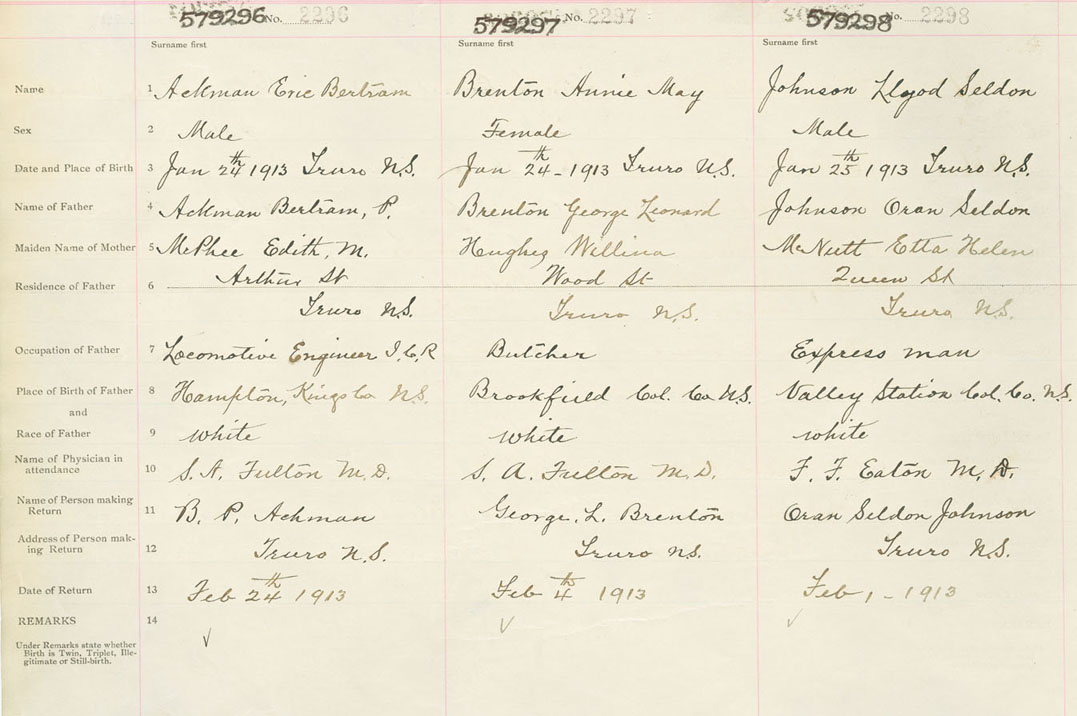 579296 No. 2296 579297 No. 2297 579298 No. 2298
Surname first Surname first Surname first
Name 1 Ackman Eric Bertram Brenton Annie May Johnson Llyod Seldon
Sex 2 Male Female Male
Date and Place of Birth 3 Jan 24th 1913 Truro N.S. Jan 24th - 1913 Truro N.S. Jan 25th 1913 Truro N.S.
Name of Father 4 Ackman Bertram, P. Brenton George Leonard Johnson Oran Seldon
Maiden Name of Mother 5 McPhee Edith, M. Hughes Willina McNutt Etta Helen
Residence of Father 6 Arthur St Wood St Queen St
Truro N.S. Truro N.S. Truro N.S.
Occupation of Father 7 Locomotive Engineer I.C.R Butcher Express man
Place of Birth of Father 8 Hampton, Kings Co N.S. Brookfield Col. Co N.S. Valley Station Col. Co. N.S.
and
Race of Father 9 white white white
Name of Physician in
attendance 10 S. A. Fulton M.D. S. A. Fulton M.D. F. F. Eaton M.D.
Name of Person making
Return 11 B. P. Ackman George. L. Brenton Oran Seldon Johnson
Address of Person mak-
ing Return 12 Truro N.S. Truro N.S. Truro N.S.
Date of Return 13 Feb 24th 1913 Feb 4th 1913 Feb 1 - 1913
REMARKS 14
Under Remarks state whether
Birth is Twin, Triplet, Ille-
gitimate or Still-birth.